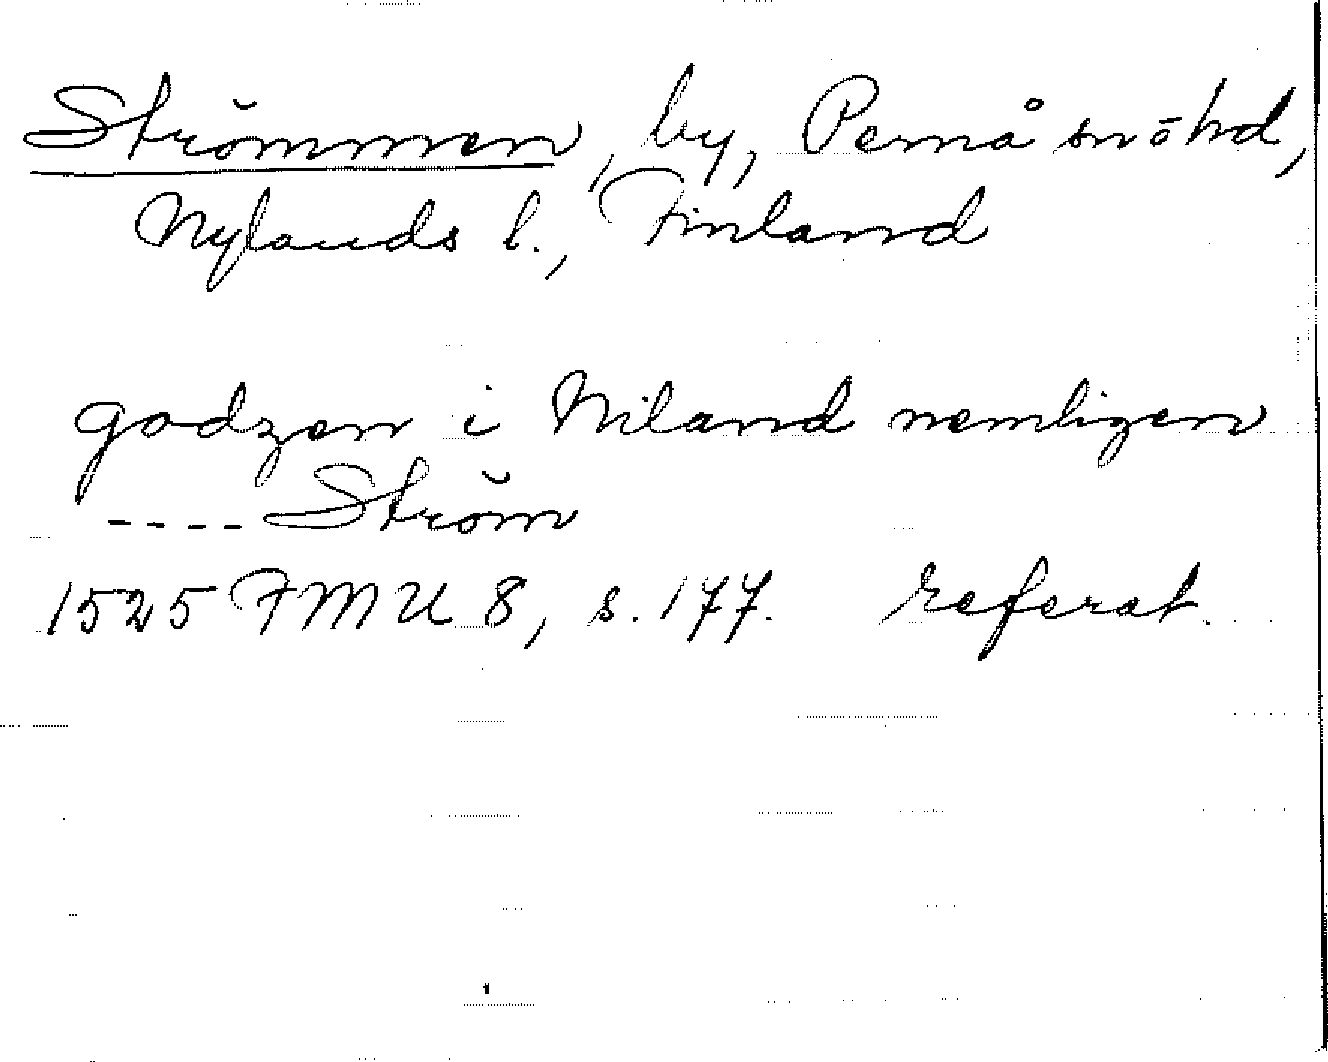 Strömmen, by, Pernå sn o hd,
Nylands l., Finland
godzen i Niland nemligen
---- Ström
1525 FMU 8, s. 177. referat.